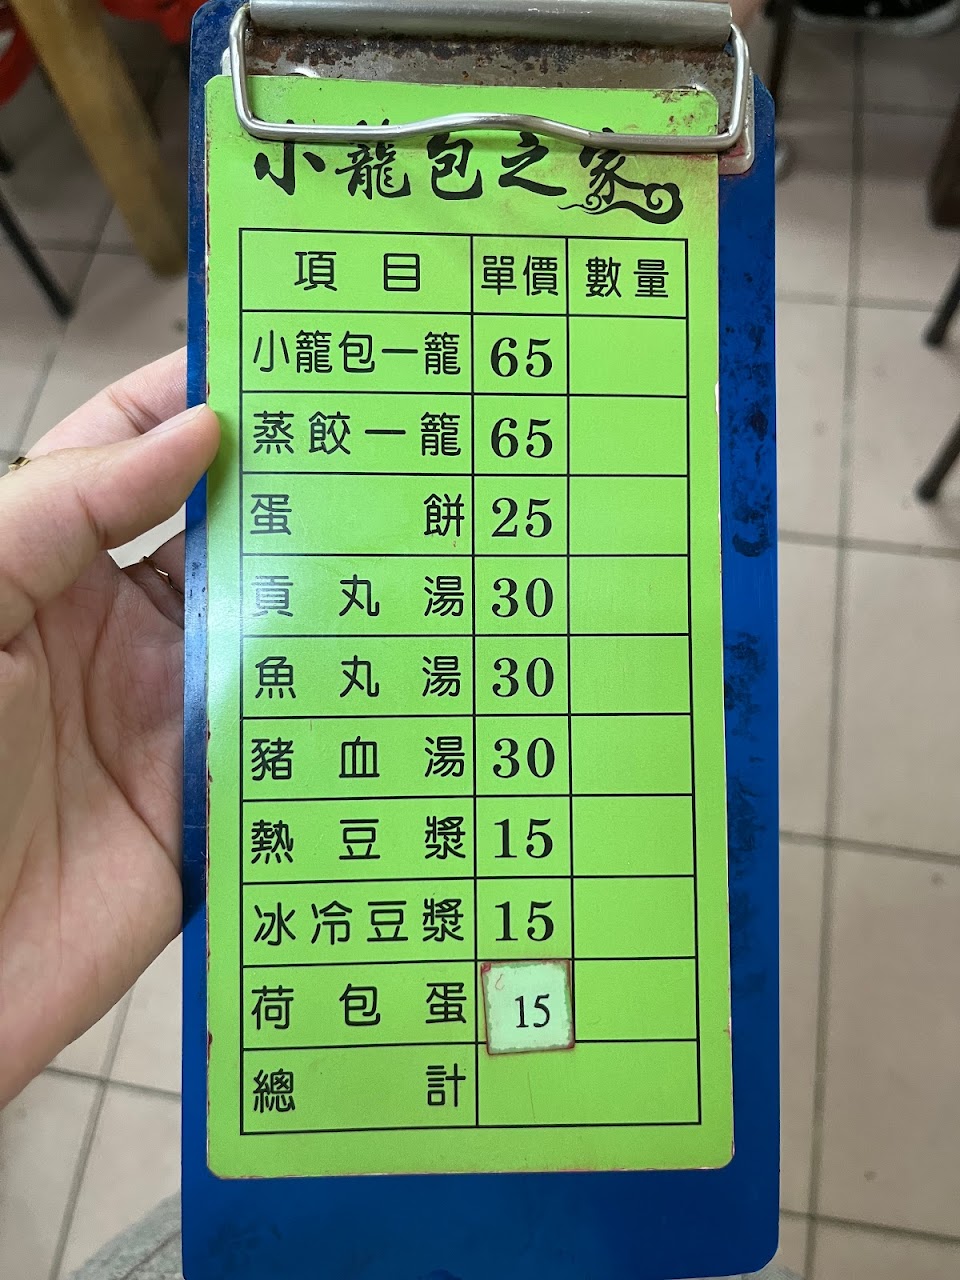 小龍包之家
項目 單價 數量
小籠包一籠 65
蒸餃一籠 65
蛋餅 25
貢丸湯 30
魚丸湯 30
豬血湯 30
熱豆漿 15
冰冷豆漿 15
荷包蛋 15
總計